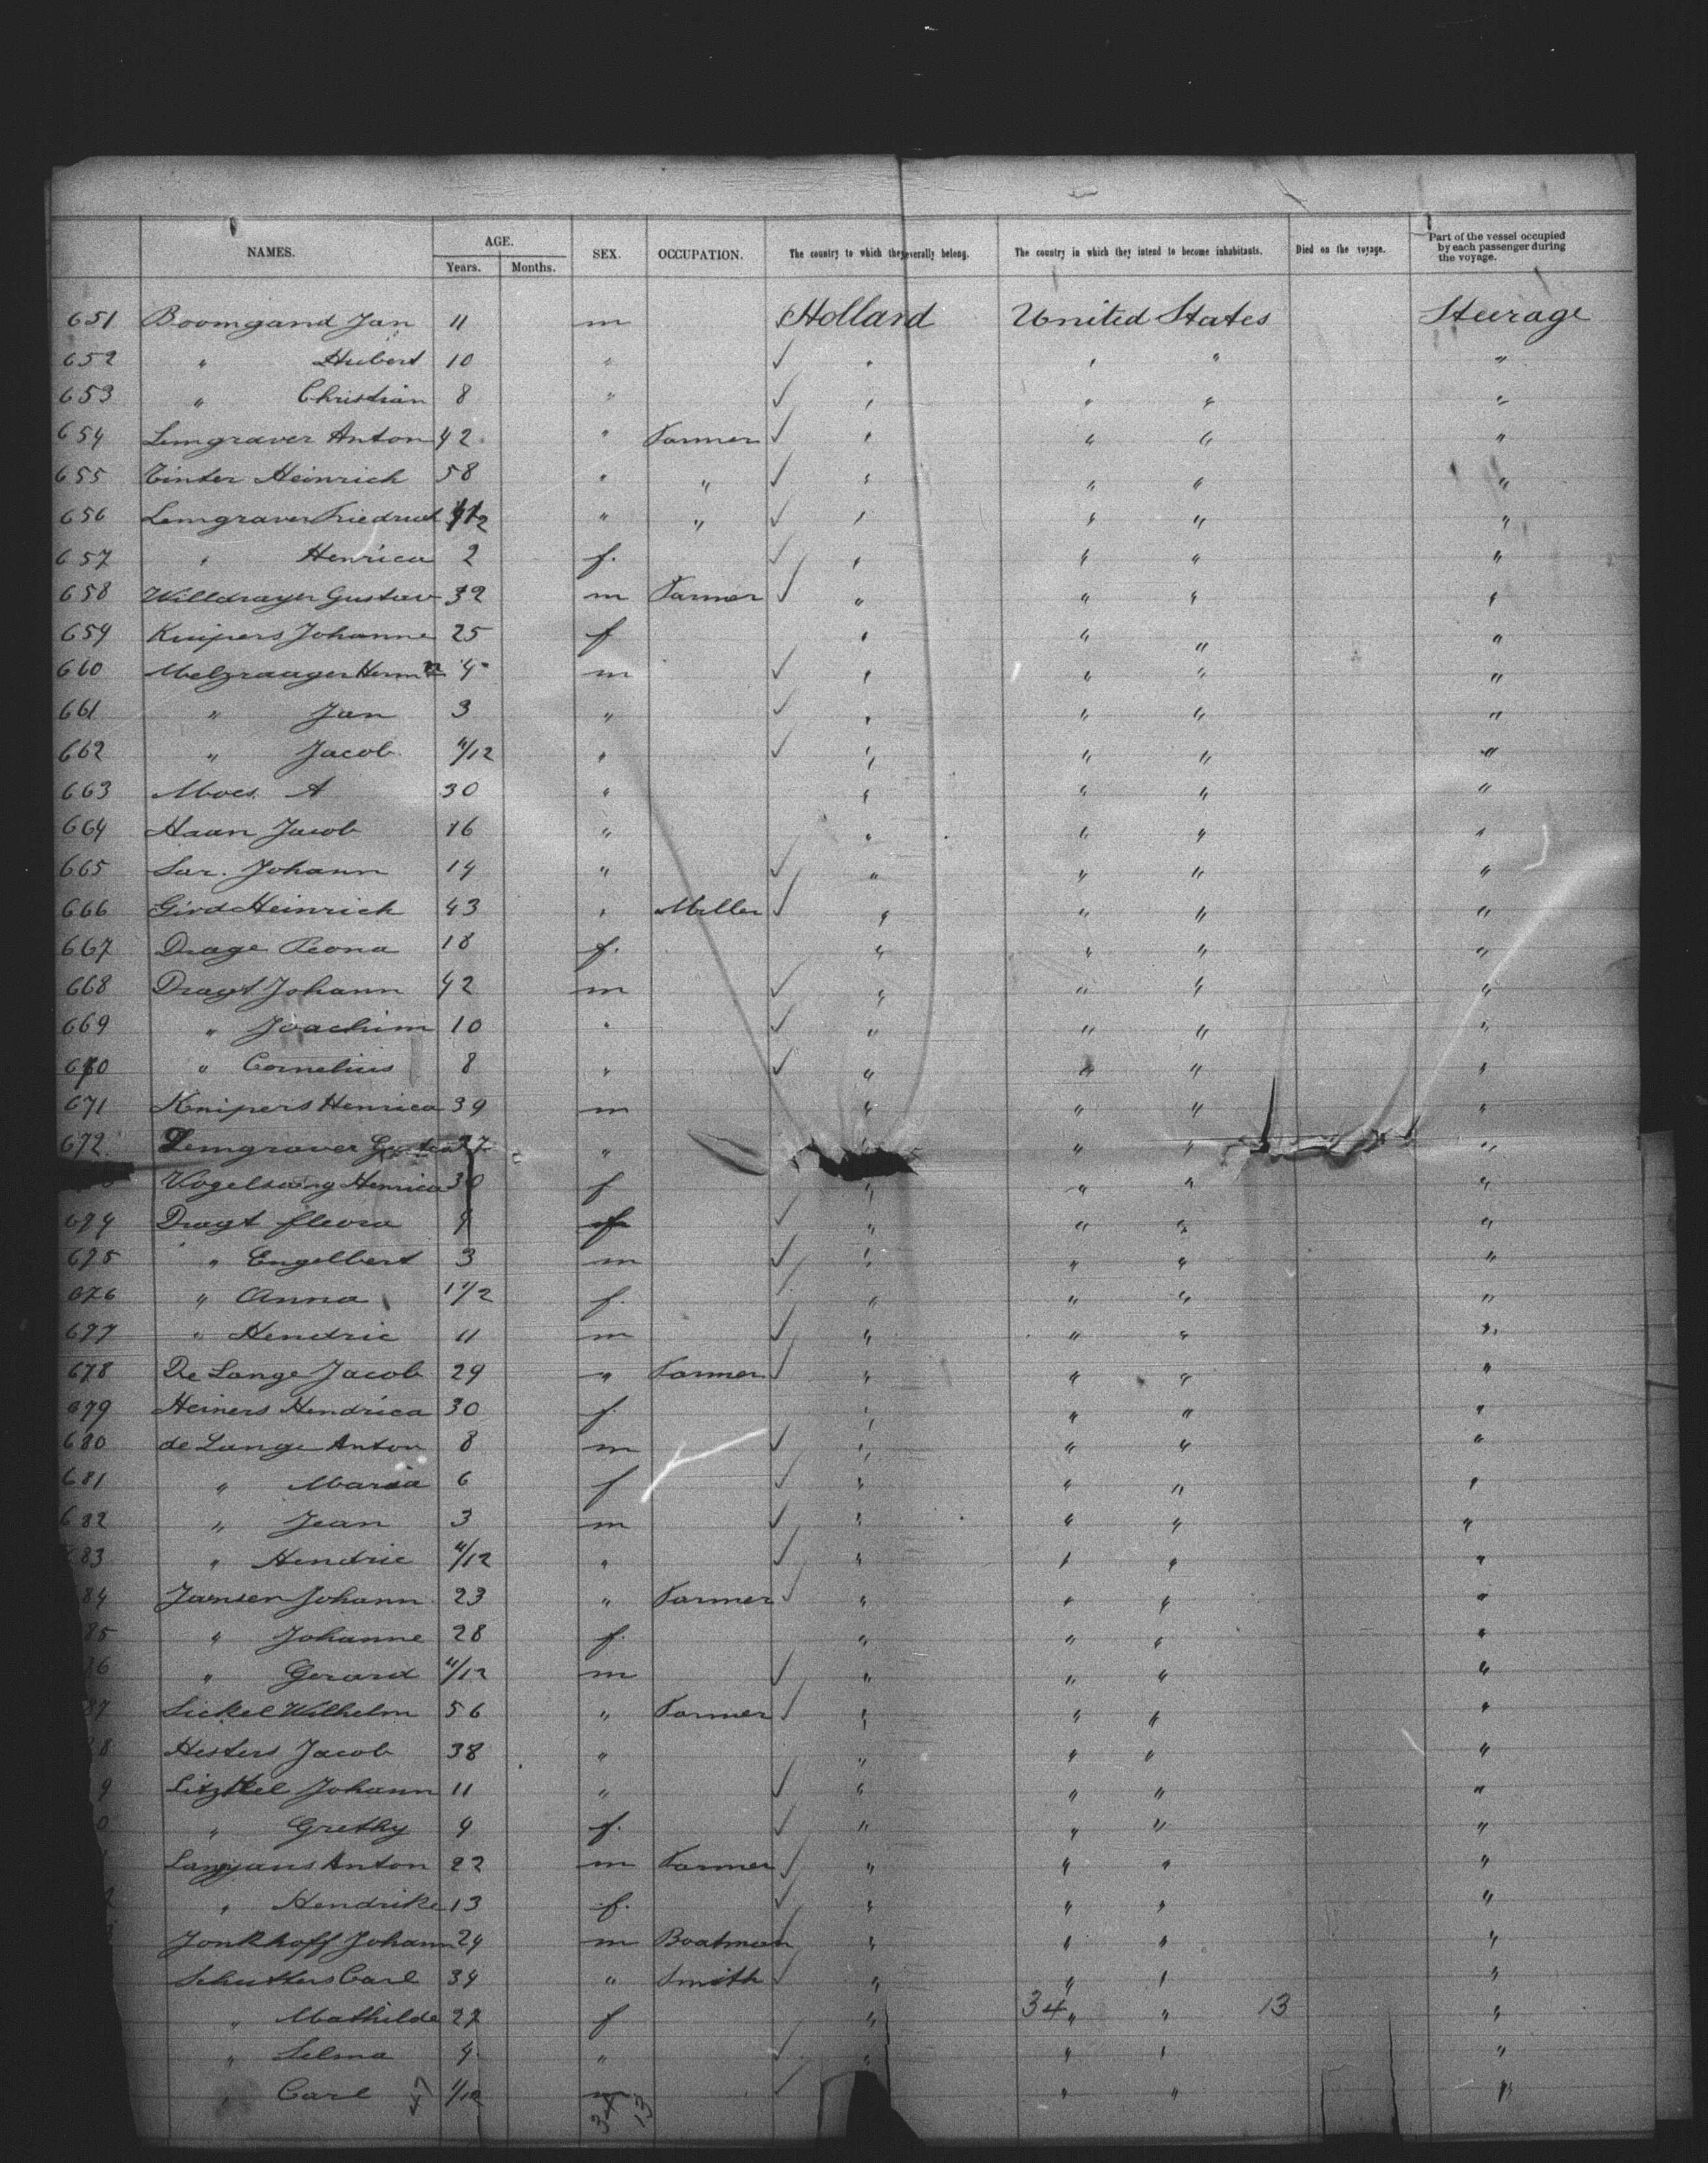 NAMES. AGE. SEX. OCCUPATION. The country to which they severally belong. The country in which they intend to become inhabitants. Died on the voyage. Part of the vessel occupied by each passenger during the voyage.
Years. Months.
651 Boomgand Jan 11 m Holland United States Steerage
652 " Hubert 10 " " " " "
653 " Christian 8 " " " " "
654 Lemgraver Anton 42 " Farmer " " " "
655 Tinter Heinrich 58 " " " " " "
656 Lemgraver " " " " " "
657 " Henrica 2 f. " " " "
658 Willdrayer Gustav 32 m Farmer " " " "
659 Kuipers Johanne 25 f " " " "
660 4 m " " " "
661 " Jan 3 " " " " "
662 " Jacob 11/12 " " " " "
663 Moes. A 30 " " " " "
664 Haan Jacob 16 " " " " "
665 Sar. Johann 14 " " " " "
666 Gird Heinrich 43 " Miller " " " "
667 Drage 18 f. " " " "
668 Dragt Johann 42 m " " " "
669 " Joachim 10 " " " " "
670 " Cornelius 8 " " " " "
671 Knipers Henrica 39 m " " " "
672 Lemgraver " " " "
Vogelsang Henrica 30 f " " " "
674 Dragt f " " " "
675 " Engelbert 3 m " " " "
676 " Anna 1 1/2 f. " " " "
677 " Hendric 11 m " " " "
678 De Lange Jacob 29 " Farmer " " " "
679 Heiners Hendrica 30 f. " " " "
680 de Lange Anton 8 m " " " "
681 " Maria 6 f " " " "
682 " Jean 3 m " " " "
83 " Hendric 11/12 " " " " "
84 Jansen Johann 23 " Farmer " " " "
85 " Johanne 28 f. " " " "
86 " Gerard 11/12 m " " " "
87 Sickel Wilhelm 56 " Farmer " " " "
8 Hesters Jacob 38 " " " " "
9 Johann 11 " " " " "
0 " Grethy 9 f. " " " "
Anton 22 m Farmer " " " "
" Hendrike 13 f. " " " "
Jonkhoff Johann 24 m Boatman " " " "
Schutters Carl 34 " Smith " " " "
" Mathilde 27 f " 34 " " 13 "
" Selma 4 " " " " "
" Carl 47 1/12 m " " "
34 13